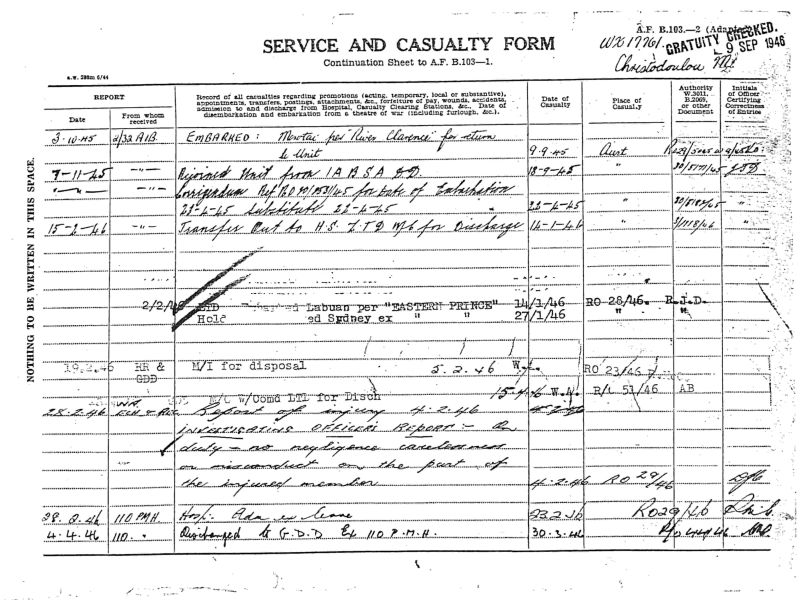 A.F. B.103.—2 (Adapted)
WX17761.
GRATUITY CHECKED.
9 SEP 1946
SERVICE AND CASUALTY FORM
Continuation Sheet to A.F. B.103—1.
Christodoulou
A.W. 288m 6/44
REPORT
Date
From whom received
Record of all casualties regarding promotions (acting, temporary, local or substantive), appointments, transfers, postings, attachments, &c., forfeiture of pay, wounds, accidents, admission to and discharge from Hospital, Casualty Clearing Stations, &c., Date of disembarkation and embarkation from a theatre of war (including furlough, &c.).
Date of Casualty
Place of Casualty
Authority W.3011, B.2069, or other Document
Initials of Officer Certifying Correctness of Entries
NOTHING TO BE WRITTEN IN THIS SPACE.
3-10-45 2/32 AIB. EMBARKED: Morotai per "River Clarence" for return
to Unit 9-9-45 Aust
7-11-45 -"- Rejoined Unit from 1 A B S A D. 18-9-45 "
-"- -"- Corrigendum Ref for date of Embarkation
23-4-45 Substitute 22-4-45 22-4-45 "
15-2-46 -"- Transfer Out to H.S. L.T.D M/6 for Discharge 14-1-46 "
2/2/46 LTD Labuan per "EASTERN PRINCE" 14/1/46 RO 28/46. R.J.D.
Hold ed Sydney ex " " 27/1/46 " "
19.2.46 RR & GDD M/I for disposal 5.2.46 RO 23/46
M/C w/Comd LTL for Disch 15.4.46 W.N. R/L 51/46 AB
28.2.46 Report of injury 4.2.46
INVESTIGATING OFFICERS REPORT - On
duty - no negligence carelessness
or misconduct on the part of
the injured member 4.2.46 RO 29/46
28.2.46 110 PMH. Hosp. Adm ex leave 23.2.46 RO29/46
4.4.46 110. " Discharged to G.D.D Ex 110 P.M.H. 30.3.46